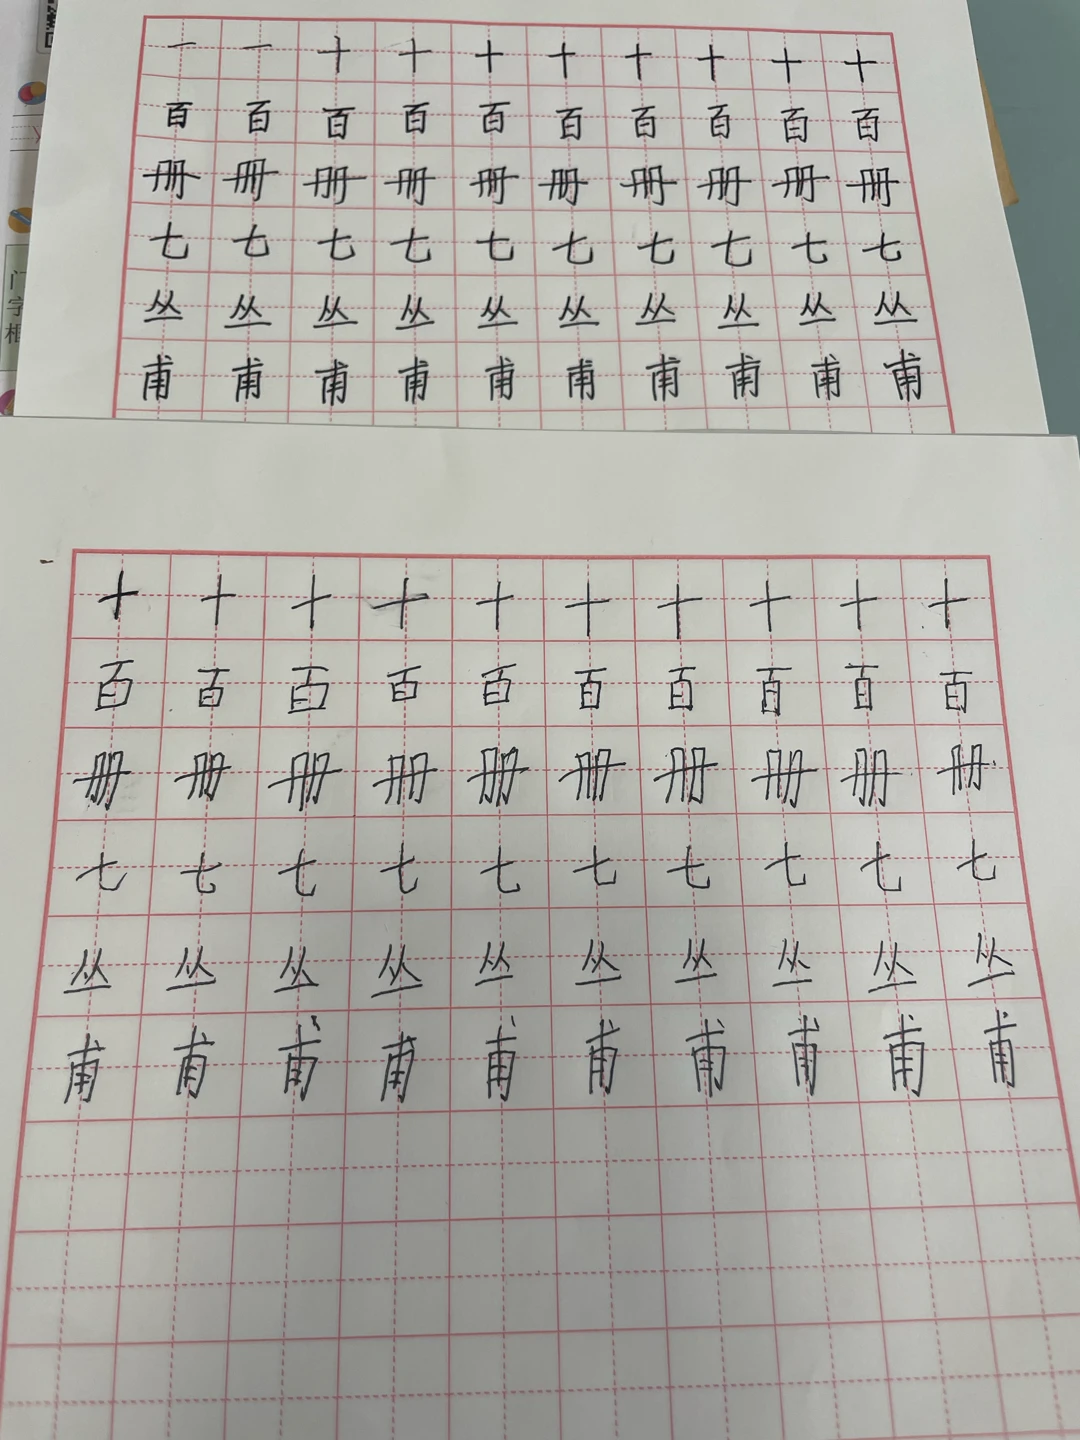 一 一 十 十 十 十 十 十 十 十
百 百 百 百 百 百 百 百 百 百
册 册 册 册 册 册 册 册 册 册
七 七 七 七 七 七 七 七 七 七
丛 丛 丛 丛 丛 丛 丛 丛 丛 丛
甫 甫 甫 甫 甫 甫 甫 甫 甫 甫
门
字
框
十 十 十 十 十 十 十 十 十 十
百 百 百 百 百 百 百 百 百 百
册 册 册 册 册 册 册 册 册 册
七 七 七 七 七 七 七 七 七 七
丛 丛 丛 丛 丛 丛 丛 丛 丛 丛
甫 甫 甫 甫 甫 甫 甫 甫 甫 甫